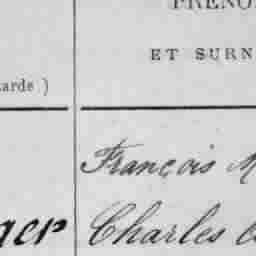 PRÉNOM
ET SURN
arde )
François M
Charles